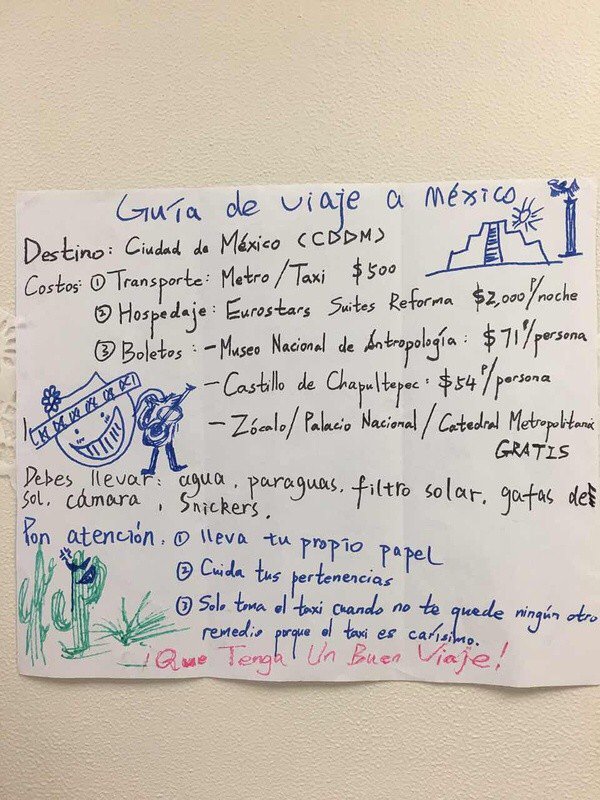 Guía de viaje a México
Destino: Ciudad de México (CDDM)
Costos: ① Transporte: Metro/Taxi $500
② Hospedaje: Eurostars Suites Reforma $2,000 P/noche
③ Boletos: - Museo Nacional de Antropología: $71 P/persona
- Castillo de Chapultepec: $54 P/persona
- Zócalo/Palacio Nacional/Catedral Metropolitana
GRATIS
Debes llevar: agua, paraguas, filtro solar, gafas de
sol, cámara, Snickers.
Pon atención: ① lleva tu propio papel
② Cuida tus pertenencias
③ Solo toma el taxi cuando no te quede ningún otro
remedio porque el taxi es carísimo.
¡Que Tenga Un Buen Viaje!